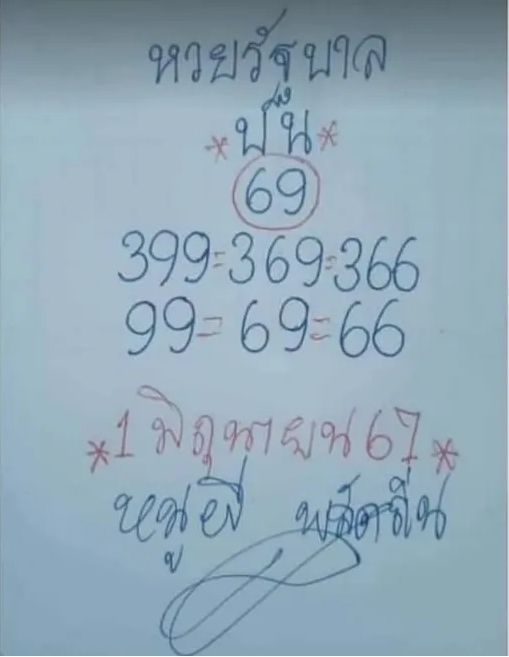 หวยรัฐบาล
*ปืน*
69
399=369=366
99=69=66
*1 มิถุนายน 67*
หนูผี พลัดถิ่น